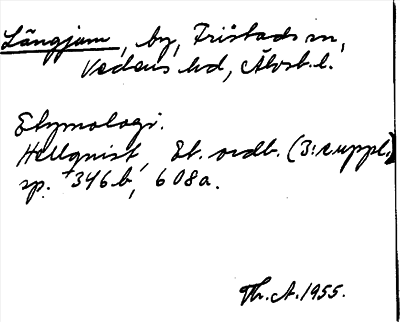 Längjum, by, Fristads sn,
Vedens hd, Älvsb. l.
Etymologi.
Hellquist, Et. ordb. (3: e uppl.)
sp. 1346 b, 608a.
Th. A. 1955.